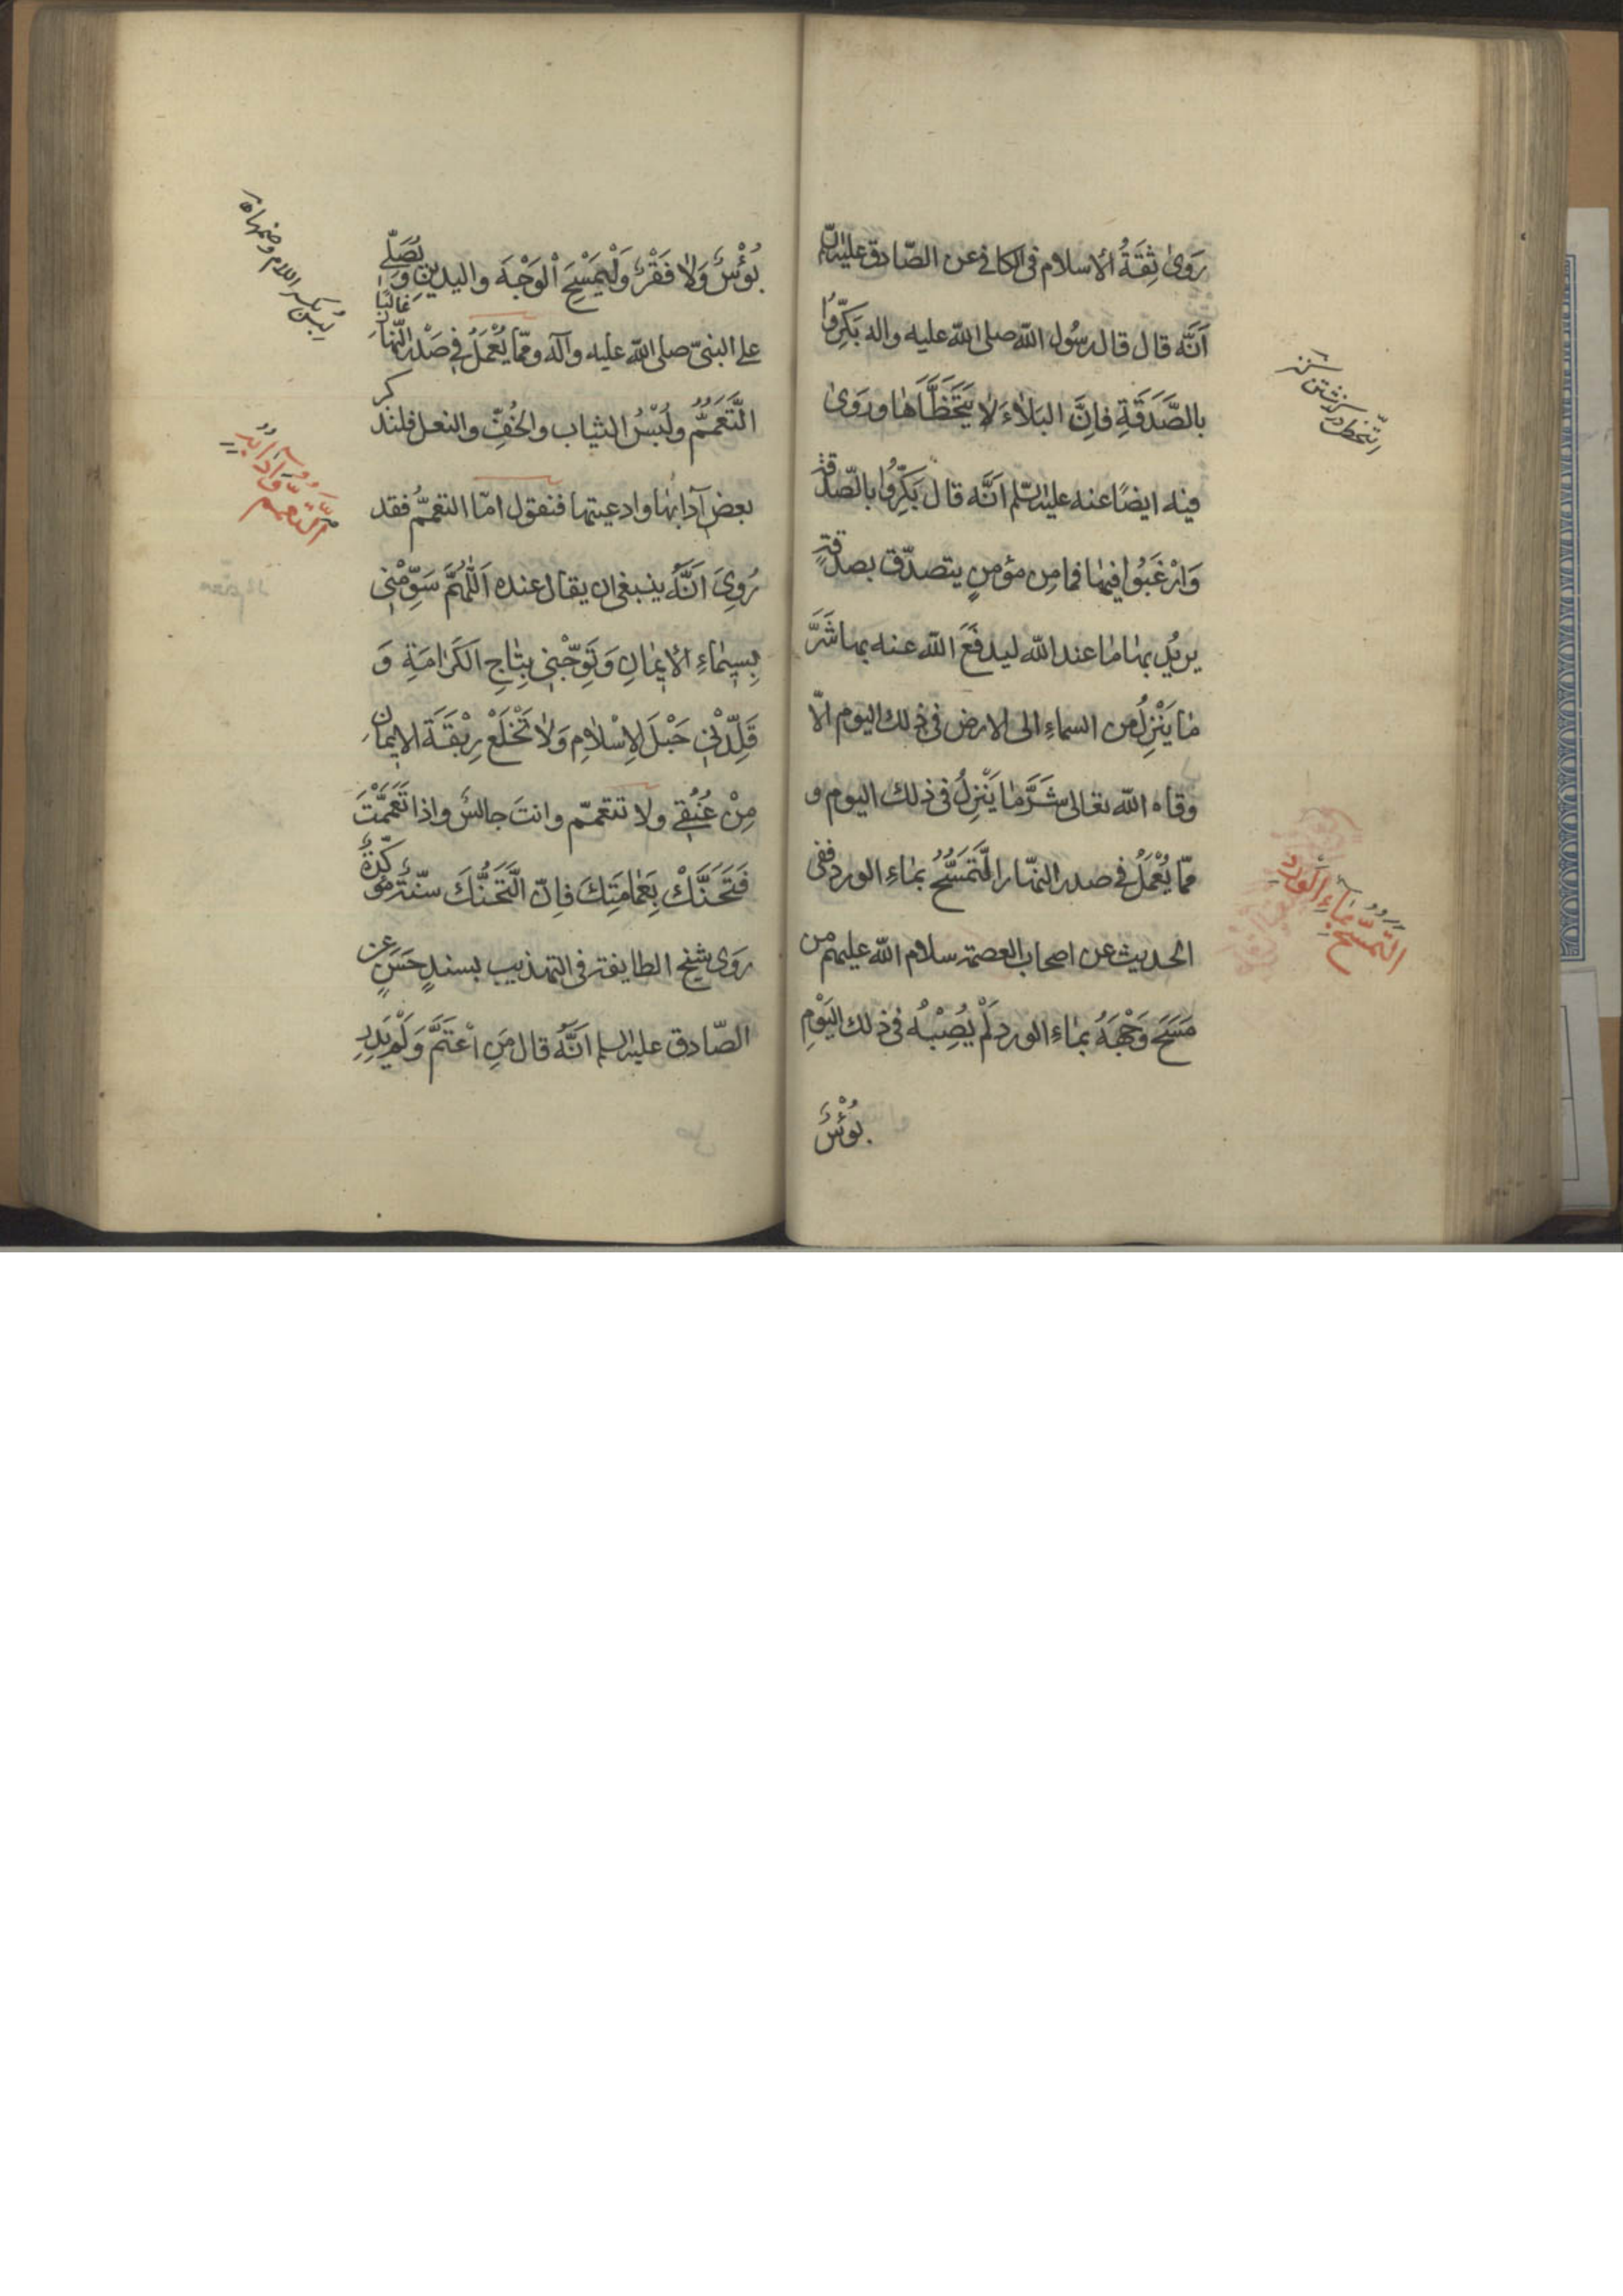 رَوىٰ ثِقَةُ الاسلام فى الكافى عن الصّادق عليه السلم
اَنَّه قال قال رسُول الله صلى الله عليه واله بَكِّرُوا
بالصَّدَقَةِ فاِنَّ البَلاٰءَ لاٰ يَتَخَطَّاهٰا وروَىٰ
فيه ايضًا عنه عليه السّلم اَنَّه قال بَكِّرُوا بالصّدقة
وَارْغَبُوا فيها فما مِن مؤمنٍ يتصدّق بصدقةٍ
يريُد بها مٰا عند الله ليدفَعَ الله عنه بها شَرَّ
مٰا يَنْزِلُ من السماءِ الى الارض فى ذلك اليوم الّا
وقاه الله تعالى شَرَّ مٰا يَنْزِلُ فى ذلك اليوم و
ممّا يُعْمَلُ فى صدر النهّار التَّمَسُّحُ بمٰاءِ الورد ففى
الحديث عن اصحاب العصمة سلام الله عليهم من
مَسَحَ وَجْهَهُ بمٰاءِ الورد لَمْ يُصِبْهُ فى ذلك اليَوْمِ
بُؤْسٌ
التَّمَسُّحُ بِمٰاءِ الْوَرْدِ
بُؤْسٌ وَلاٰ فَقْرٌ وَلْيَمْسَحِ الْوَجْهَ واليدين وَيُصَلّى
على النبىّ صلى الله عليه وآله وممّا يُعْمَلُ فى صَدْرِ النّهارِ غالبًا
التَّعَمُّمُ ولُبْسُ الثياب والخُفِّ والنعل فلنذكر
بعض آدابهٰا وادعيتها فنقول امّا التعمُّم فقد
رُوِىَ اَنَّهُ ينبغى ان يقال عنده اَللّٰهُمَّ سَوِّمْنى
بِسيمٰاءِ الاٖيمٰانِ وَتَوِّجْنى بِتٰاجِ الكَرٰامَةِ وَ
قَلِّدْنى حَبْلَ الاِسْلاٰمِ وَلاٰ تَخْلَعْ رِبْقَةَ الايمٰانِ
مِنْ عُنُقى ولا تتعمّم وانتَ جالسٌ واذا تَعَمَّمْتَ
فَتَحَنَّكْ بِعَمٰامَتِكَ فاِنّ التَّحَنُّكَ سنّةٌ مؤكّدةٌ
رَوى شيخ الطايفة فى التهذيب بسندٍ حَسَنٍ عن
الصّادق عليه السلم اَنَّهُ قال مَنِ اعْتَمَّ وَلَمْ يُدِرِ
لبس بكسر اللام وضمها
التَّعَمُّمُ وَآدَابُهُ